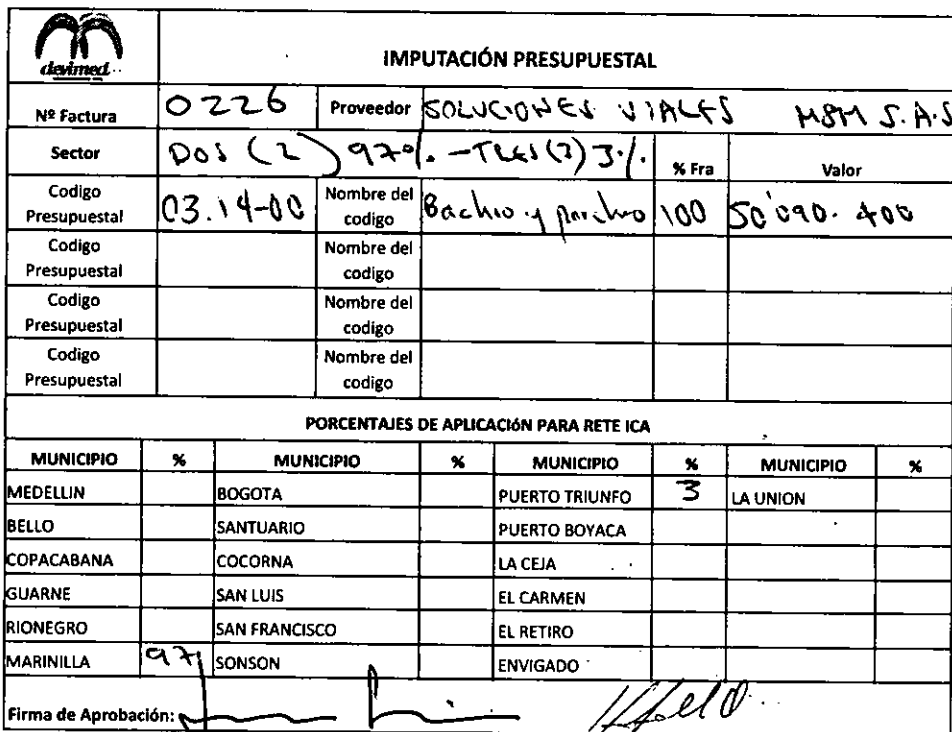 devimed
IMPUTACIÓN PRESUPUESTAL
Nº Factura 0226 Proveedor SOLUCIONES VIALES M&M S.A.S
Sector DOS (2) 97%. - TRES (3) 3%. % Fra Valor
Codigo Presupuestal 03.14-00 Nombre del codigo Bacheo y parcheo 100 50'090.400
Codigo Presupuestal Nombre del codigo
Codigo Presupuestal Nombre del codigo
Codigo Presupuestal Nombre del codigo
PORCENTAJES DE APLICACIÓN PARA RETE ICA
MUNICIPIO % MUNICIPIO % MUNICIPIO % MUNICIPIO %
MEDELLIN BOGOTA PUERTO TRIUNFO 3 LA UNION
BELLO SANTUARIO PUERTO BOYACA
COPACABANA COCORNA LA CEJA
GUARNE SAN LUIS EL CARMEN
RIONEGRO SAN FRANCISCO EL RETIRO
MARINILLA 97 SONSON ENVIGADO
Firma de Aprobación: